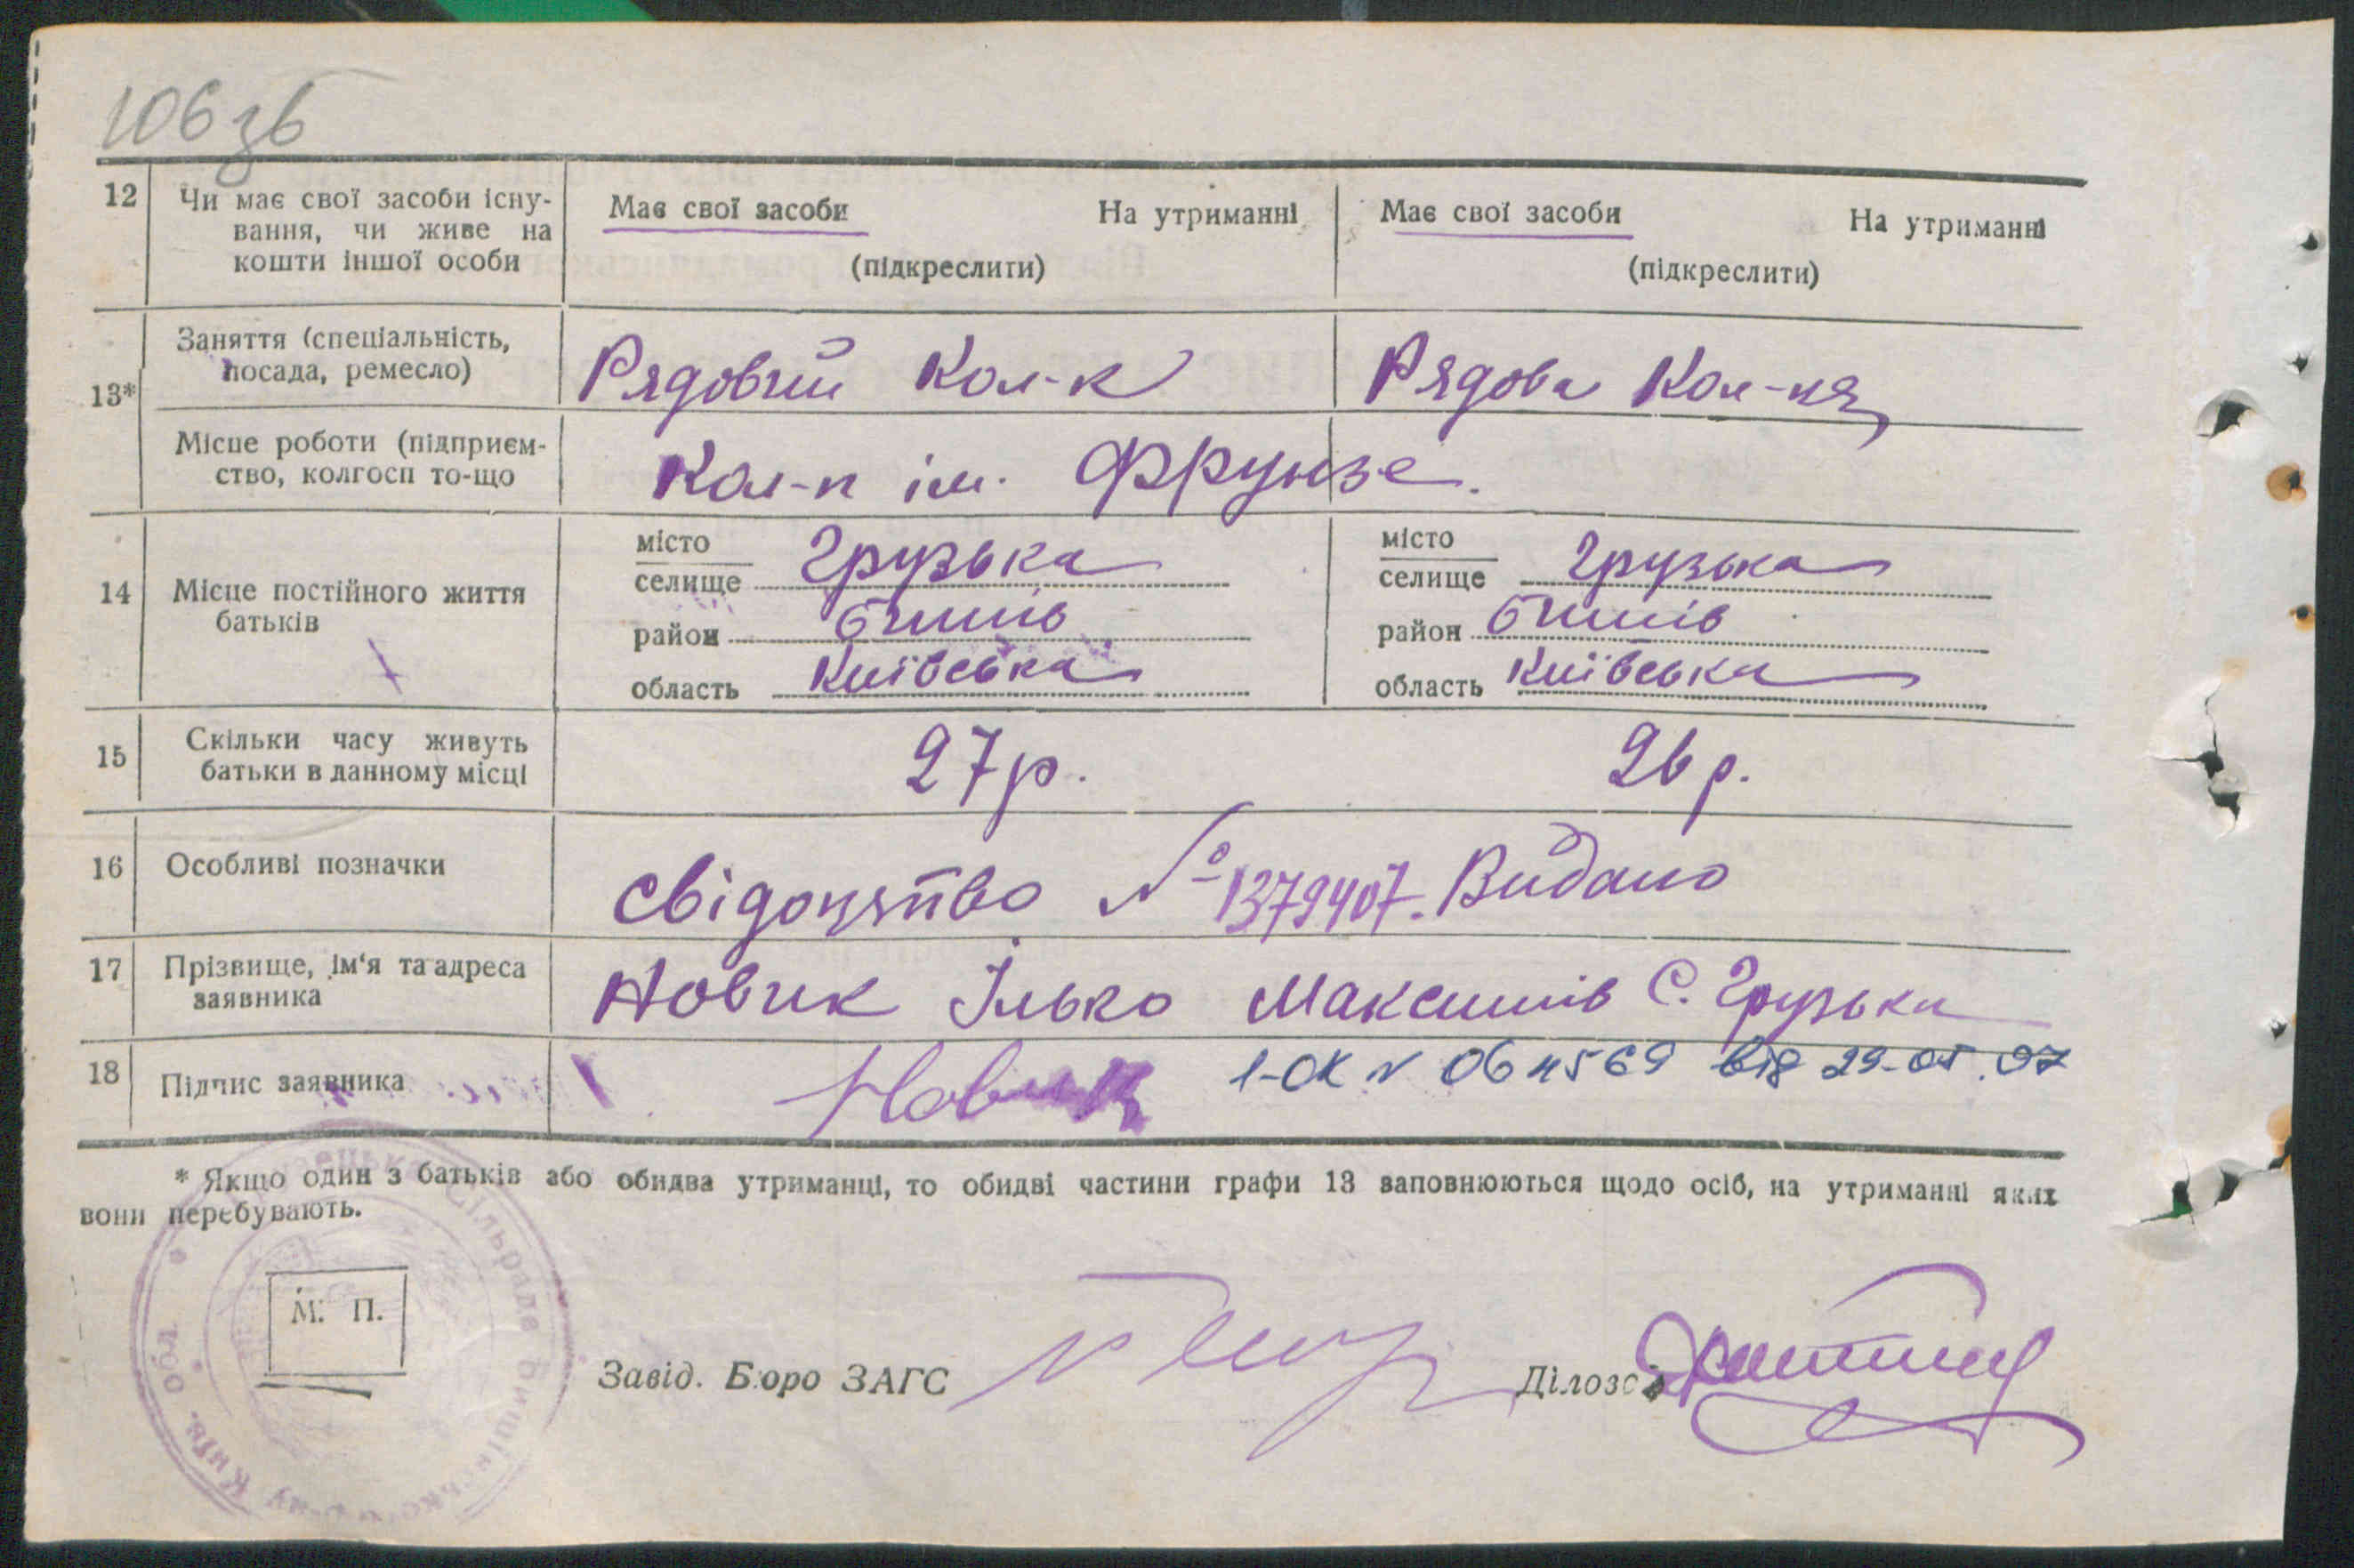 106 зв
12 Чи має свої засоби існу- Має свої засоби На утриманні Має свої засоби На утриманні
вання, чи живе на
кошти іншої особи (підкреслити) (підкреслити)
13* Заняття (спеціальність, Рядовий Кол-к Рядова Кол-ця
посада, ремесло)
Місце роботи (підприєм- Кол-п ім. Фрунзе.
ство, колгосп то-що
14 Місце постійного життя місто Грузька місто Грузька
батьків селище селище
район Бишів район Бишів
область Київська область Київська
15 Скільки часу живуть 27 р. 26 р.
батьки в данному місці
16 Особливі позначки свідоцтво № 1379407. Видано
17 Прізвище, ім'я та адреса Новик Ілько Максимів С. Грузька
заявника
18 Підпис заявника Новик 1-ОК № 064569 від 29-05.97
* Якщо один з батьків або обидва утриманці, то обидві частини графи 13 заповнюються щодо осіб, на утриманні яких
вони перебувають.
М. П.
Завід. Бюро ЗАГС Діловод
Сільрада Бишівського р-ну Київ. обл.